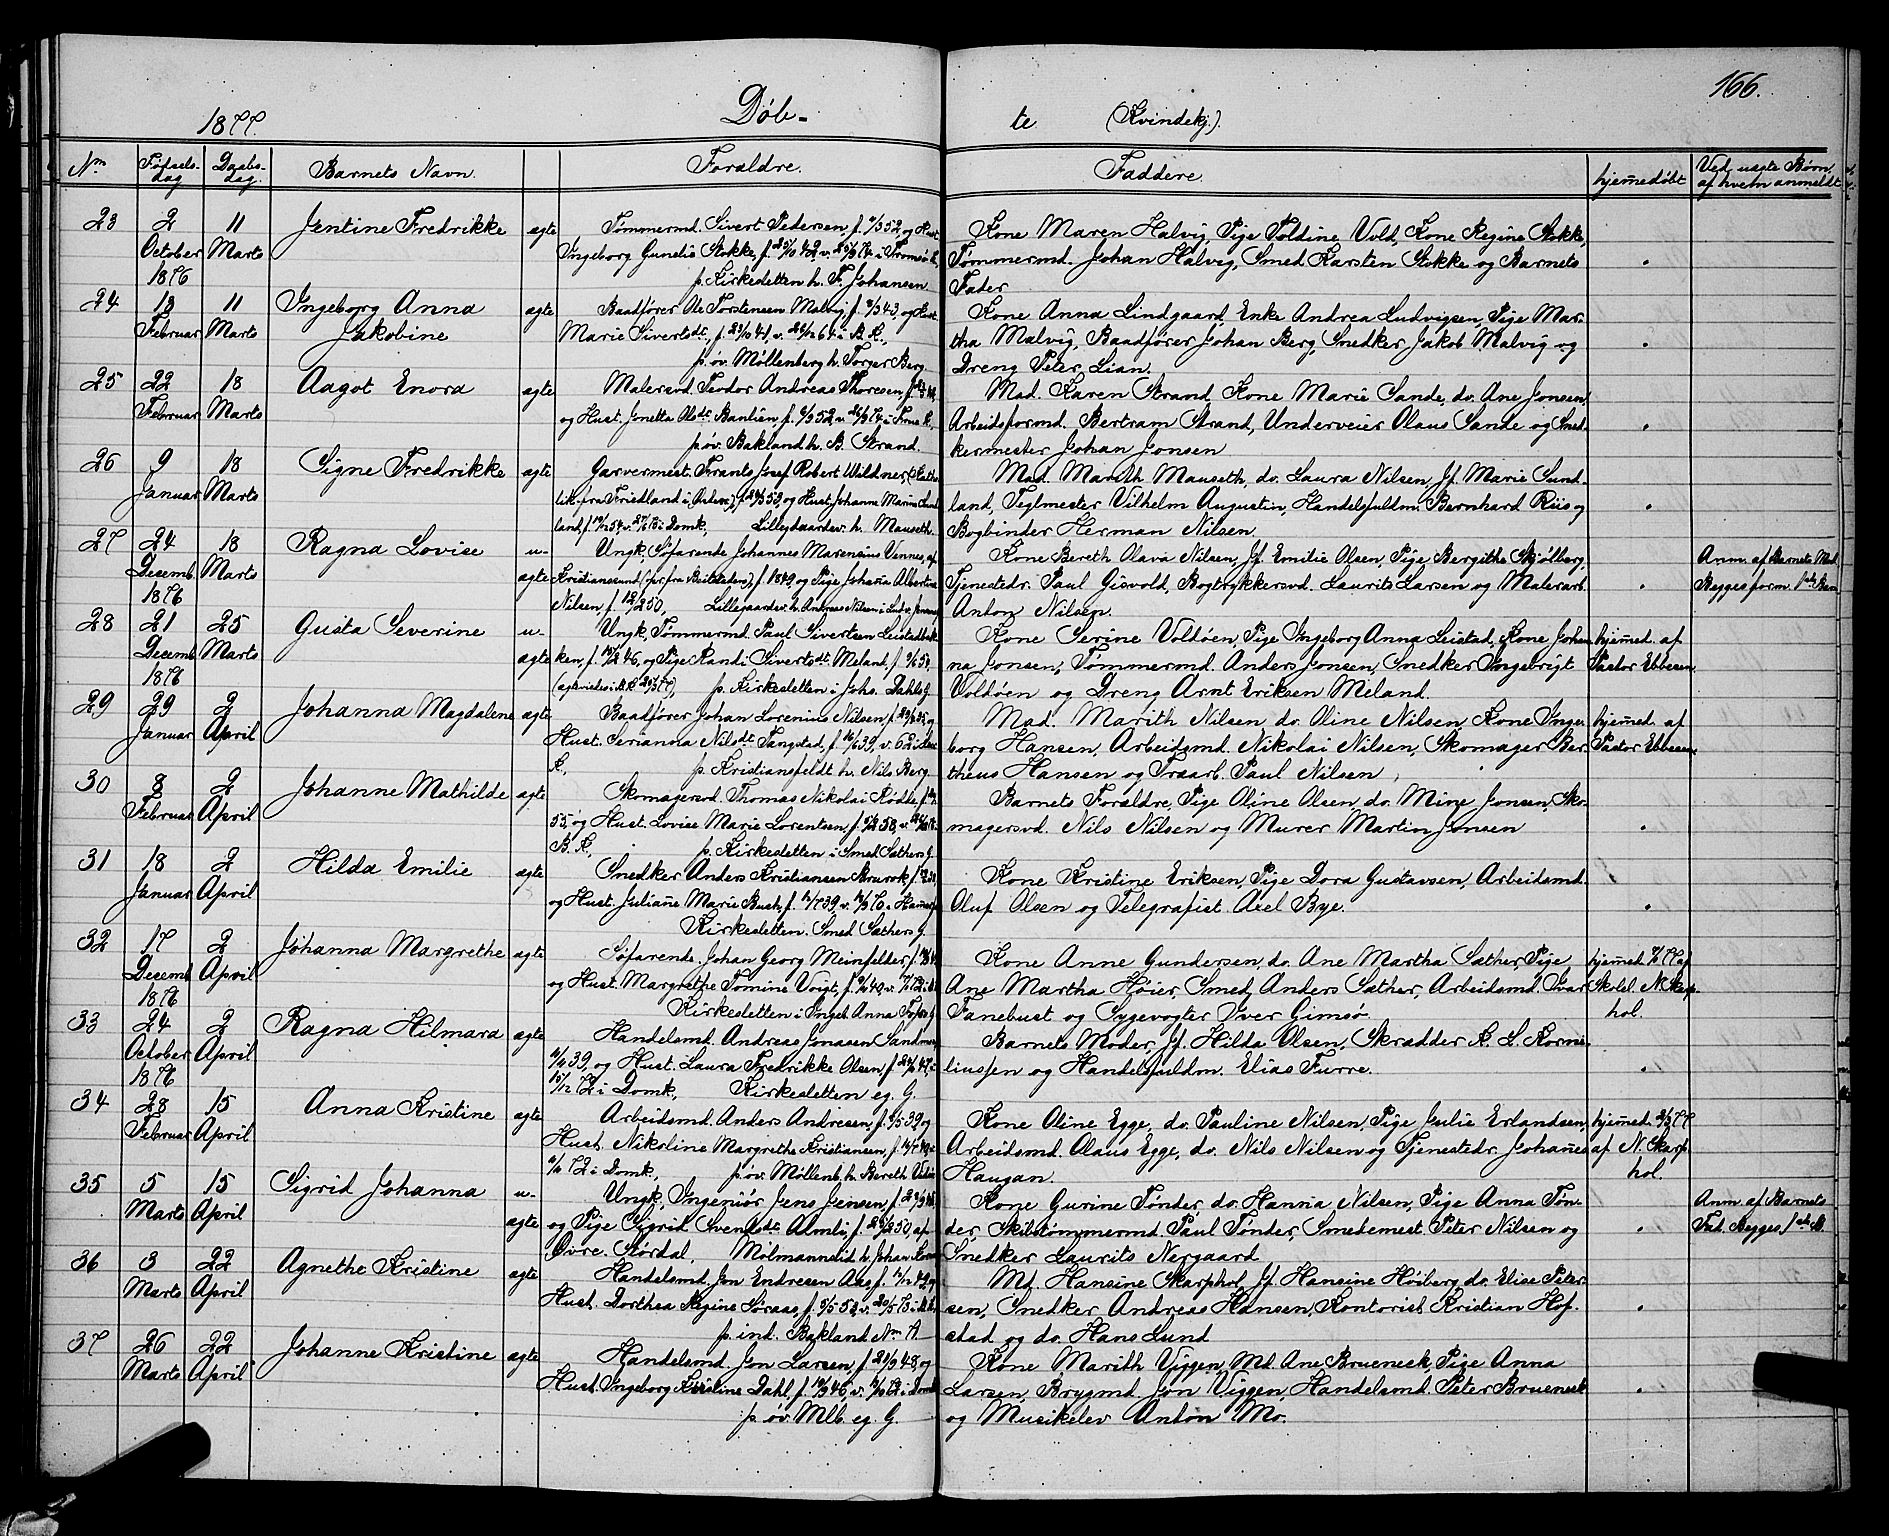 166.
1877. Døb- te (Kvindekj.).
No. Fødsels-dag Daabs-dag. Barnets Navn. Forældre. Faddere. hjemmedøbt Ved uægte Børn af hvem anmeldt
23 2 October 1876 11 Marts Jentine Fredrikke ægte
Tømmermd. Sivert Pedersen, og Hust.
Ingeborg Gunelie Stokke, i Tromsø K.,
p. Kirkesletten h. T. Johansen
Kone Maren Halvig, Pige Poldine Vold, Kone Regine Stokke,
Tømmermd. Johan Halvig, Smed Karsten Stokke og Barnets
Fader
24 13 Februar 11 Marts Ingeborg Anna Jakobine ægte
Baadfører Ole Torstensen Malvig, og Hust.
Marie Sivertsdt., i B. K.,
p. øv. Møllenberg h. Torger Berg.
Kone Anna Lindgaard, Enke Andrea Ludvigsen, Pige Mar-
tha Malvig, Baadfører Johan Berg, Snedker Jakob Malvig og
Dreng Peter Lian.
25 22 Februar 18 Marts Aagot Enora ægte
Malersvd. Teodor Andreas Thoresen,
og Hust. Jonetta Olsdt.
p. øv. Bakland h. B. Strand.
Mad. Karen Strand, Kone Marie Sande, do. Ane Jonsen,
Arbeidsformd. Bertram Strand, Underveier Olaus Sande og Sned-
kermester Johan Jonsen
26 9 Januar 18 Marts Signe Fredrikke ægte
Garvermest. Frants Josef Robert Wildner, (Katho-
lik fra Friedland i og Hust. Johanna Marine Sund-
land, i Domk., Lillegaardsv. h. Mauseth.
Mad. Marith Mauseth, do. Laura Nilsen, Jf. Marie Sund-
land, Teglmester Vilhelm Augustin, Handelsfuldm. Bernhard Riis og
Bogbinder Herman Nilsen.
27 24 Decemb. 1876 18 Marts Ragna Lovise u-ægte
Ungk. Søfarende Johannes Marensius Vennes, af
Kristianssund (før fra Beitstaden), f. 1849, og Pige Johanna Albertine
Nilsen, Lillegaardsv. h. Andreas Nilsen
Kone Bereth Olava Nilsen, Jf. Emilie Olsen, Pige Bergitha Skjølberg,
Tjenestedr. Paul Gisvold, Bogtrykkersvd. Laurits Larsen og Malerarb.
Anton Nilsen.
Anm. af Barnets Mod.
Begges form. 1ste Barn
28 21 Decemb. 1876 25 Marts Gusta Severine u-ægte
Ungk. Tømmermd. Paul Sivertsen Leistadbak-
ken, og Pige Randi Sivertsdt. Meland,
p. Kirkesletten i Johs. Dahls G.
Kone Serine Voldøen, Pige Ingeborg Anna Leistad, Kone Johan-
na Jonsen, Tømmermd. Anders Jonsen, Snedker Ingebrigt
Voldøen og Dreng Arnt Eriksen Meland.
hjemmed. af
Pastor Ebbesen
29 29 Januar 2 April Johanna Magdalene ægte
Baadfører Johan Lorenius Nilsen, og
Hust. Serianna Nilsdt. Tangstad,
K., p. Kristiansfeldt h. Nils Berg.
Mad. Marith Nilsen, do. Oline Nilsen, Kone Inge-
borg Hansen, Arbeidsmd. Nikolai Nilsen, Skomager Ber-
theus Hansen og Træarb. Paul Nilsen
hjemmed. af
Pastor Ebbesen
30 8 Februar 2 April Johanne Mathilde ægte
Skomagersvd. Thomas Nikolai Rødde,
55, og Hust. Lovise Marie Lorentsen,
B. K., p. Kirkesletten i Smed Sæthers G.
Barnets Forældre, Pige Oline Olsen, do. Mine Jonsen, Sko-
magersvd. Nils Nilsen og Murer Martin Jonsen
31 18 Januar 2 April Hilda Emilie ægte
Snedker Anders Kristiansen
og Hust. Juliane Marie Busch,
Kirkesletten. Smed Sæthers G.
Kone Kristine Eriksen, Pige Dora Gustavsen, Arbeidsmd.
Oluf Olsen og Telegrafist Axel Bye.
32 17 Decemb. 1876 2 April Johanna Margrethe ægte
Søfarende. Johan Georg Meinfelder,
og Hust. Margrethe Tomine Voigt,
Kirkesletten i Ingeb. Anna
Kone Anne Gundersen, do. Ane Martha Sæther, Pige
Ane Martha Høier, Smed Anders Sæther, Arbeidsmd. Ivar
Fanebust og Sygevogter Iver Gimsø.
hjemmed. af
Skolel. N. Skarp-
hol.
33 24 October 1876 2 April Ragna Hilmara ægte
Handelsmd. Andreas Jonasen
39, og Hust. Laura Fredrikke Olsen,
i Domk., Kirkesletten eg. G.
Barnets Moder, Jf. Hilda Olsen, Skrædder K. L. Korne-
liussen og Handelsfuldm. Elias Furre.
34 28 Februar 15 April Anna Kristine ægte
Arbeidsmd. Anders Andresen, og
Hust. Nikoline Margrethe Kristiansen,
i Domk., p. øv. Møllenb. h. Bereth
Kone Oline Egge, do. Pauline Nilsen, Pige Julie Erlandsen,
Arbeidsmd. Olaus Egge, do. Nils Nilsen og Tjenestedr. Johannes
Haugan.
hjemmed. 2/3 77
af N. Skarp-
hol.
35 5 Marts 15 April Sigrid Johanna u-ægte
Ungk. Ingeniør Jens Jensen,
og Pige Sigrid Svendsdt. Almli, af
Øvre. Størdal, Mølmannslid h. Johan
Kone Gurine Tønder, do. Hanna Nilsen, Pige Anna Tøn-
der, Skibstømmermd. Paul Tønder, Smedemest. Peter Nilsen og
Snedker Laurits Nergaard
Anm. af Barnets
Fad. Begges 1ste B.
36 3 Marts 22 April Agnethe Kristine ægte
Handelsmd. Jon Endresen Aas, og
Hust. Dorthea Regine Søraas,
p. ind. Bakland No. 7.
Md. Hansine Skarphol, Jf. Hansine Høiberg, do. Elise Peter-
sen, Snedker Andreas Hansen, Kontorist Kristian Hof-
stad og do. Hans Lund
37 26 Marts 22 April Johanne Kristine ægte
Handelsmd. Jon Larsen, og
Hust. Ingeborg Kristine Dahl, i Domk.
p. øv. Mlb. eg. G.
Kone Marith Viggen, Md. Ane Bruenech, Pige Anna
Larsen, Brygmd. Jon Viggen, Handelsmd. Peter Bruenech
og Musikelev Anton Mo.